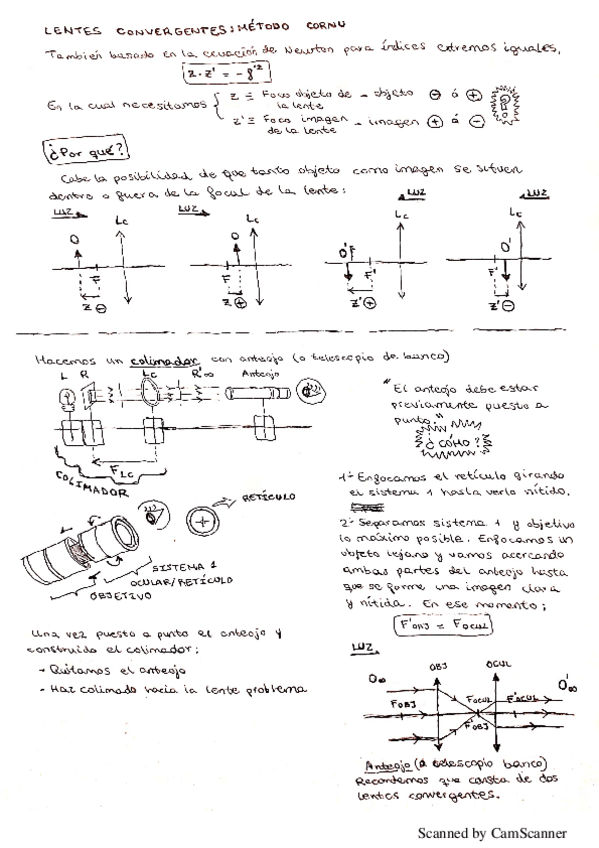 LENTES CONVERGENTES: MÉTODO CORNU
También basado en la ecuación de Newton para índices extremos iguales,
z · z' = - f'²
En la cual necesitamos { z ≡ Foco objeto de la lente - objeto ⊖ ó ⊕
z' ≡ Foco imagen de la lente - imagen ⊕ ó ⊖
¿Por qué?
Cabe la posibilidad de que tanto objeto como imagen se sitúen
dentro o fuera de la focal de la lente:
LUZ LUZ LUZ LUZ
Lc Lc Lc Lc
O O O' O'
F F F' F'
z ⊖ z ⊕ z' ⊕ z' ⊖
Hacemos un colimador con anteojo (o telescopio de banco)
L R Lc R'∞ Anteojo
F Lc
COLIMADOR
"El anteojo debe estar
previamente puesto a
punto."
¿CÓMO?
1- Enfocamos el retículo girando
el sistema 1 hasta verlo nítido.
RETÍCULO
SISTEMA 1
OCULAR/RETÍCULO
OBJETIVO
2- Separamos sistema 1 y objetivo
lo máximo posible. Enfocamos un
objeto lejano y vamos acercando
ambas partes del anteojo hasta
que se forme una imagen clara
y nítida. En ese momento;
F'OBJ ≡ FOCUL
Una vez puesto a punto el anteojo y
construido el colimador;
- Quitamos el anteojo
- Haz colimado hacia la lente problema
LUZ
OBJ OCUL
O∞ O'∞
FOBJ FOCUL F'OCUL
F'OBJ
Anteojo (o telescopio banco)
Recordemos que consta de dos
lentes convergentes.
Scanned by CamScanner